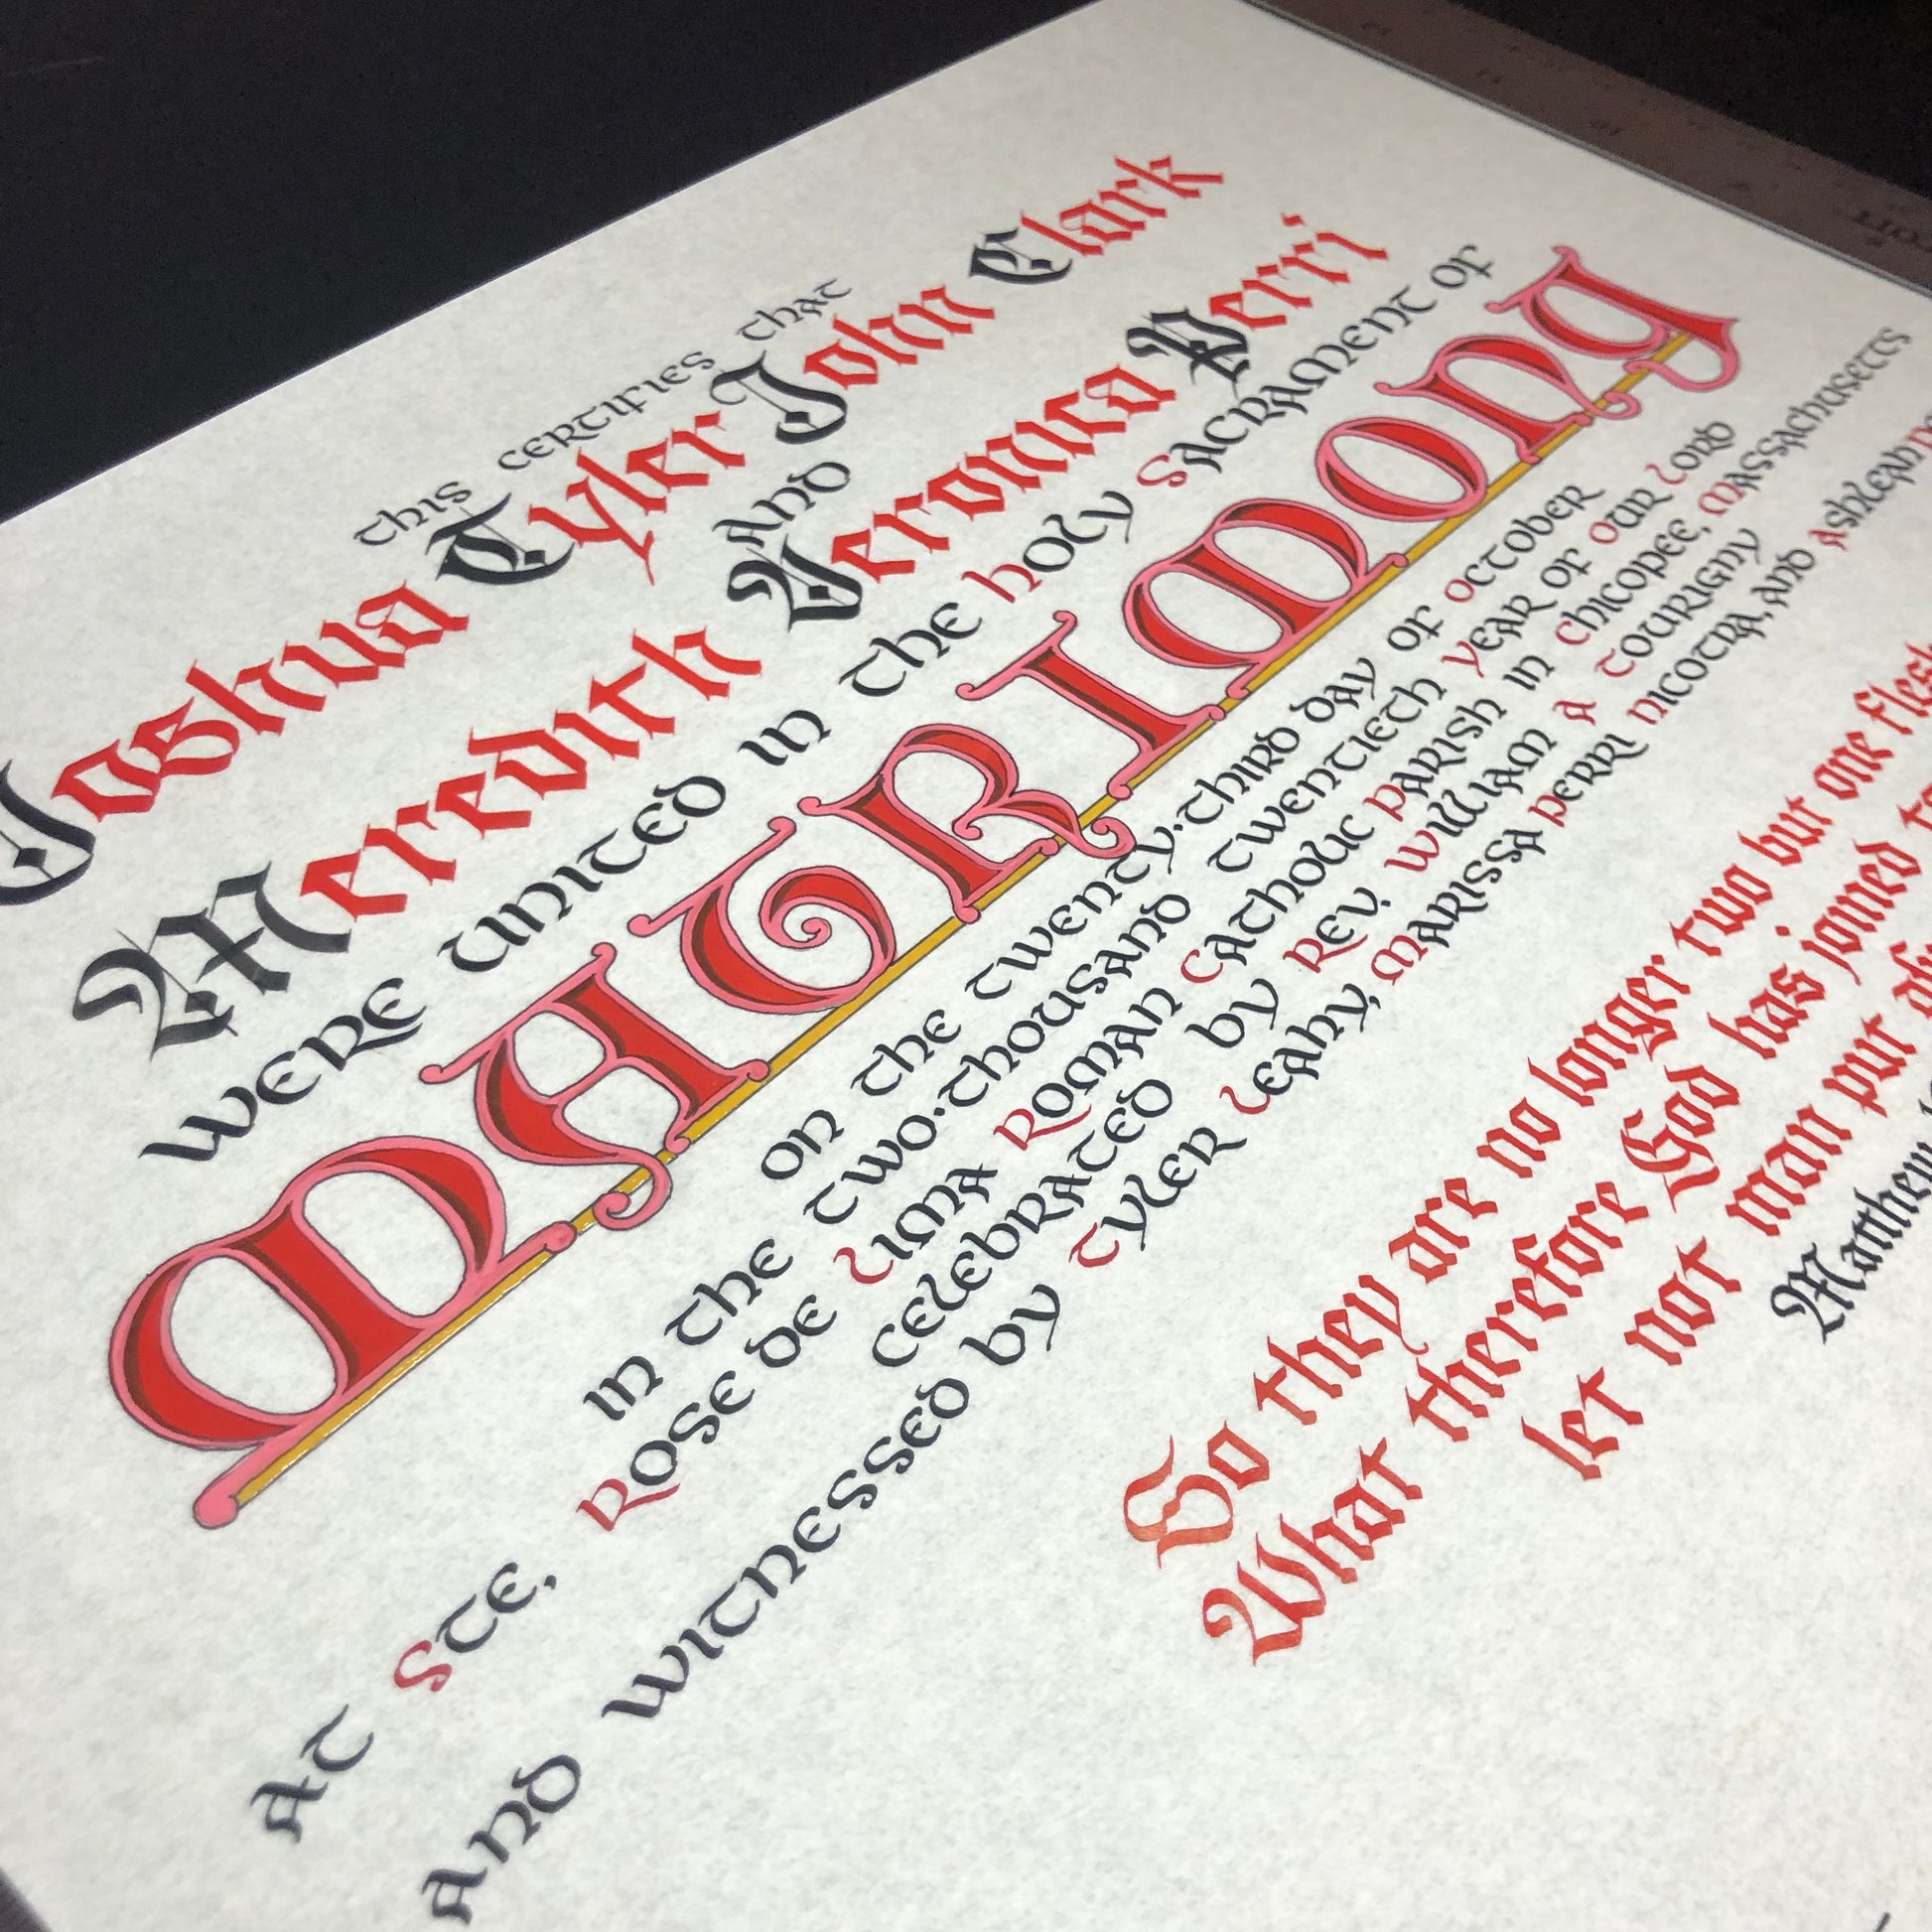 This certifies that
Joshua Tyler John Clark
and
Meredith Veronica Perri
were united in the Holy Sacrament of
MATRIMONY
on the twenty·third day of October
in the two·thousand and twentieth year of our Lord
at Ste. Rose de Lima Roman Catholic Parish in Chicopee, Massachusetts
celebrated by Rev. William A Tourigny
and witnessed by Tyler Leahy, Marissa Perri Nicotra, and Ashleah
So they are no longer two but one flesh
What therefore God has joined
let not man put
Matthew